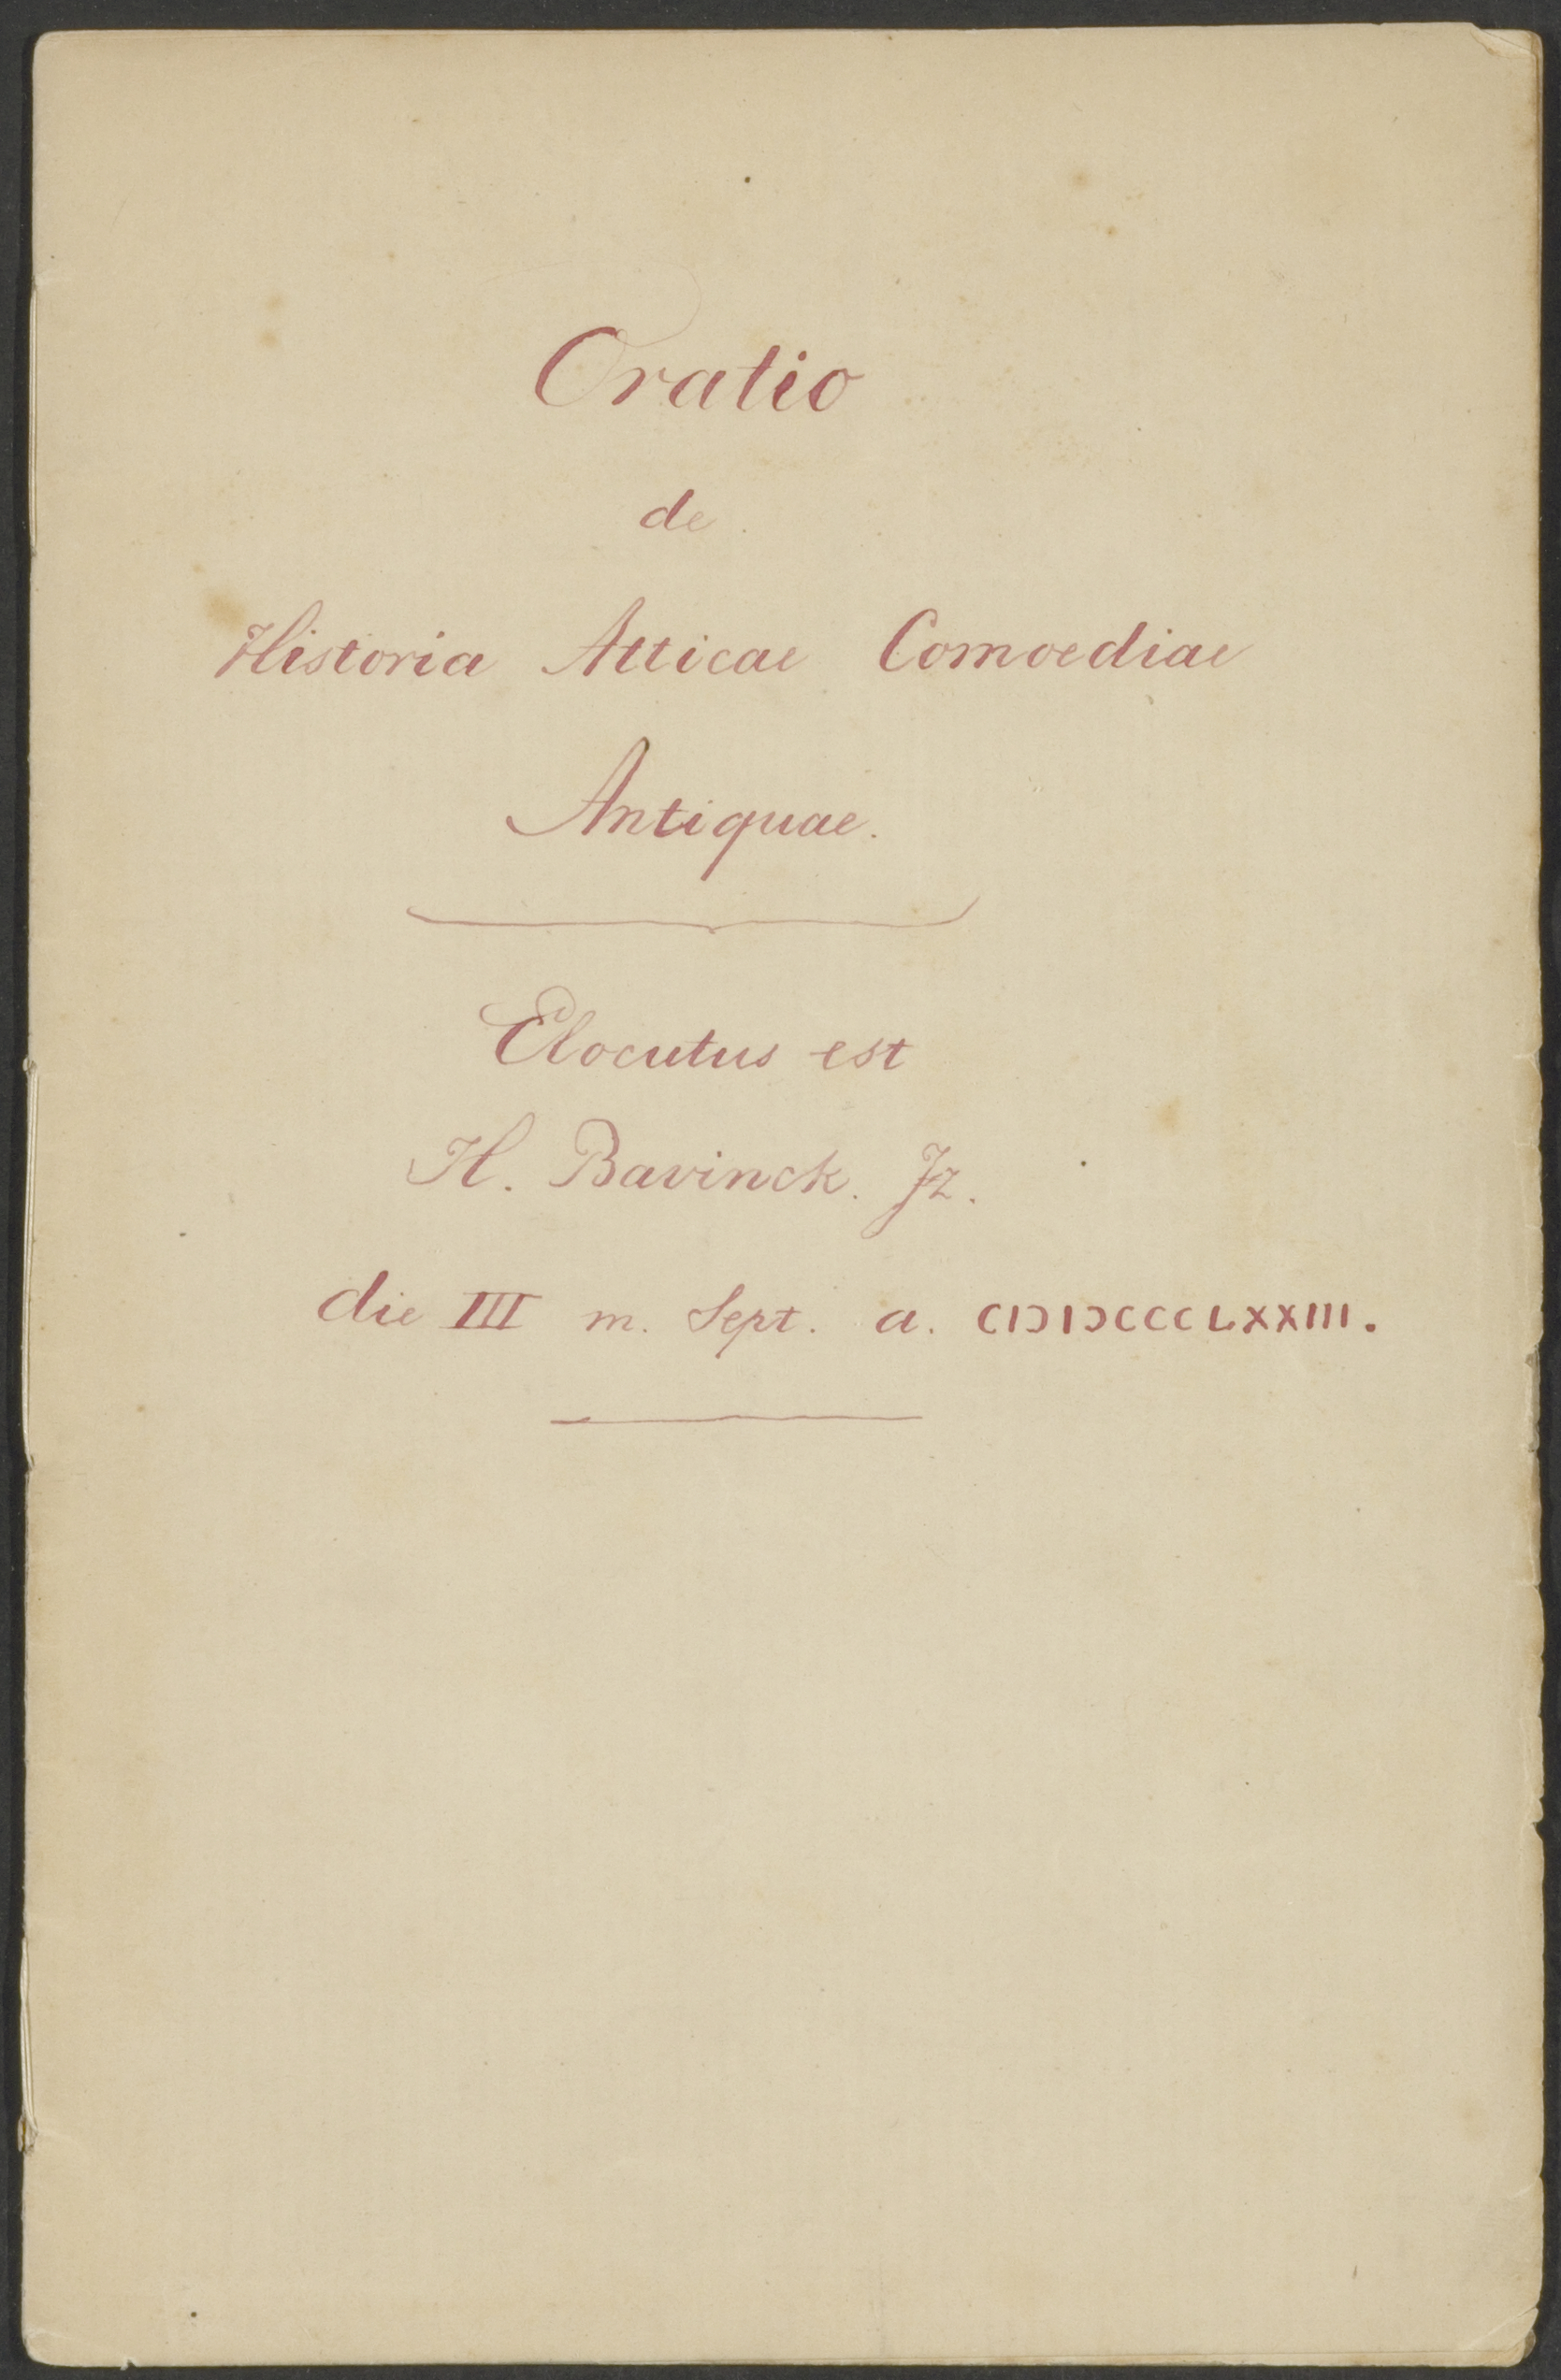 Oratio
de
Historia Atticae Comoediae
Antiquae.
Elocutus est
H. Bavinck. Jz.
die III m. Sept. a. CIↃIↃCCCLXXIII.